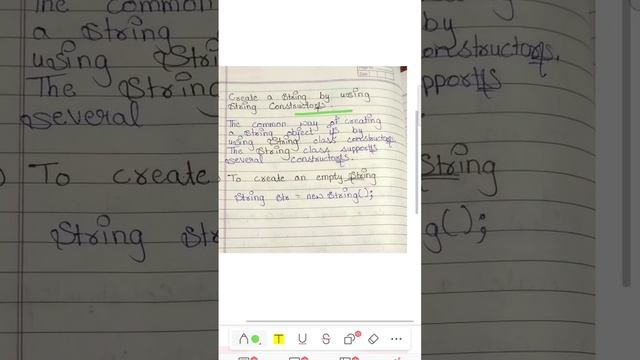 Create a String by using
String Constructors.
The common way of creating
a String object is by
using String class constructor.
The String class supports
several constructors.
To create an empty String
String Str = new String();